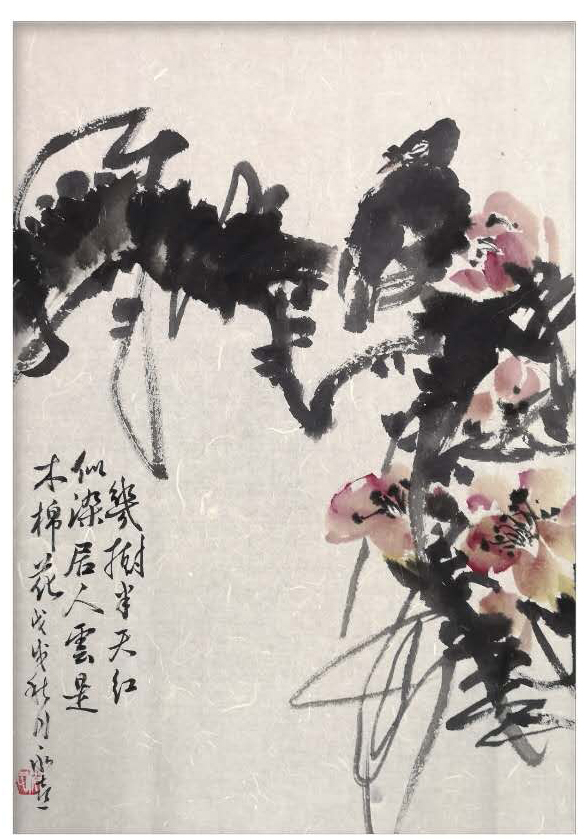 幾樹半天红
似染居人雲是
木棉花戊戌秋月永喜